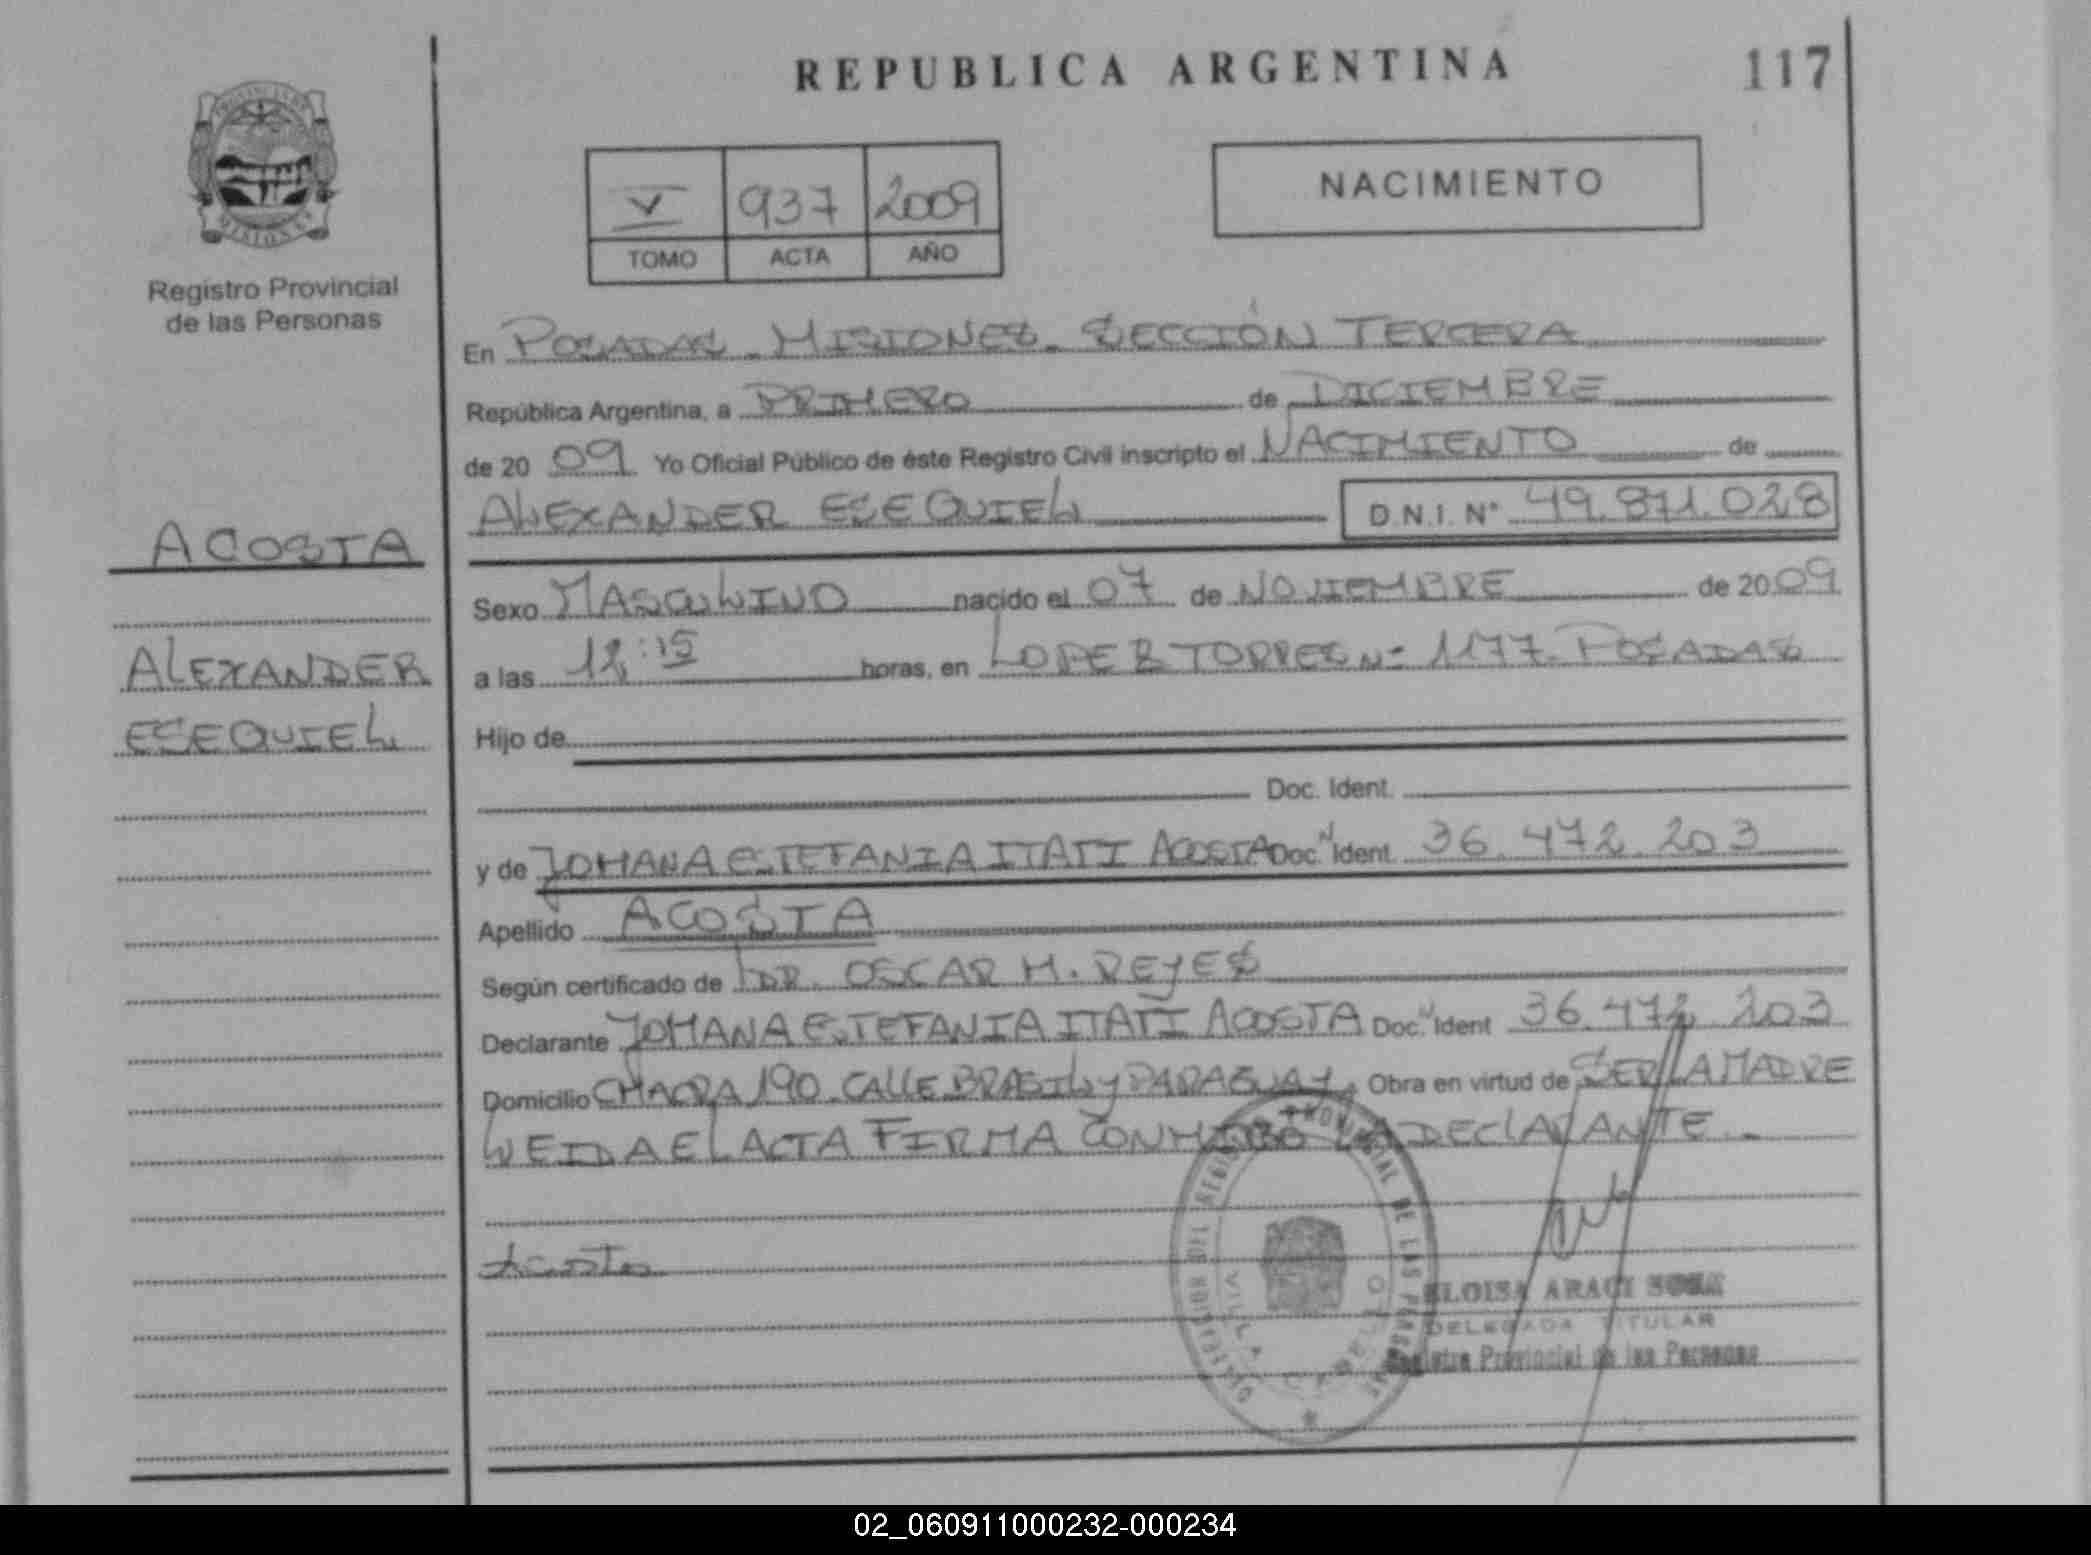 REPUBLICA ARGENTINA
117
PROVINCIA DE
MISIONES
Registro Provincial
de las Personas
V 937 2009
TOMO ACTA AÑO
NACIMIENTO
En POSADAS - MISIONES - SECCIÓN TERCERA
República Argentina, a PRIMERO de DICIEMBRE
de 20 09 Yo Oficial Público de éste Registro Civil inscripto el NACIMIENTO de
ALEXANDER ESEQUIEL D.N.I. N° 49.871.028
ACOSTA
ALEXANDER
ESEQUIEL
Sexo MASCULINO nacido el 07 de NOVIEMBRE de 20 09
a las 12:15 horas, en LOPEZ TORRES Nº 1177. POSADAS
Hijo de
Doc. Ident.
y de JOHANA ESTEFANIA ITATI ACOSTA Doc. N Ident. 36.472.203
Apellido ACOSTA
Según certificado de DR. OSCAR H. REYES
Declarante JOHANA ESTEFANIA ITATI ACOSTA Doc. N Ident 36.472.203
Domicilio CHACRA 190. CALLE BRASIL y PARAGUAY. Obra en virtud de SER LA MADRE
LEIDA EL ACTA FIRMA CONMIGO LA DECLARANTE.
Acosta
DELEGACION DEL REGISTRO PROVINCIAL DE LAS PERSONAS
VILLA
ELOISA ARACI SOSA
DELEGADA TITULAR
Registro Provincial de las Personas
02_060911000232-000234